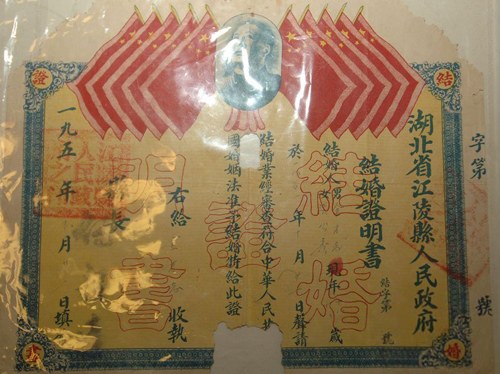 湖北省江陵縣人民政府
結婚證明書
結字第 號
結婚人 現年 歲
於 年 月 日聲請
結婚業經審查符合中華人民共
國婚姻法准予結婚特給此證
右給 收執
縣長
一九五 年 月 日填
字第 號
結婚證明書
結
婚
證